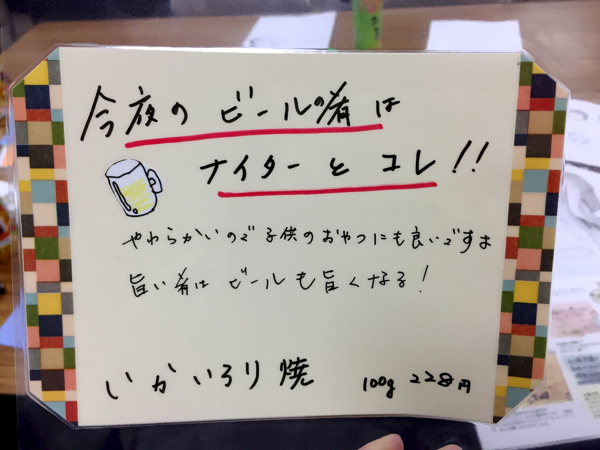 今夜の ビールの肴は
ナイターと コレ!!
やわらかいので子供のおやつにも良いですよ
旨い肴は ビールも旨くなる!
いかいろり焼 100g 228円